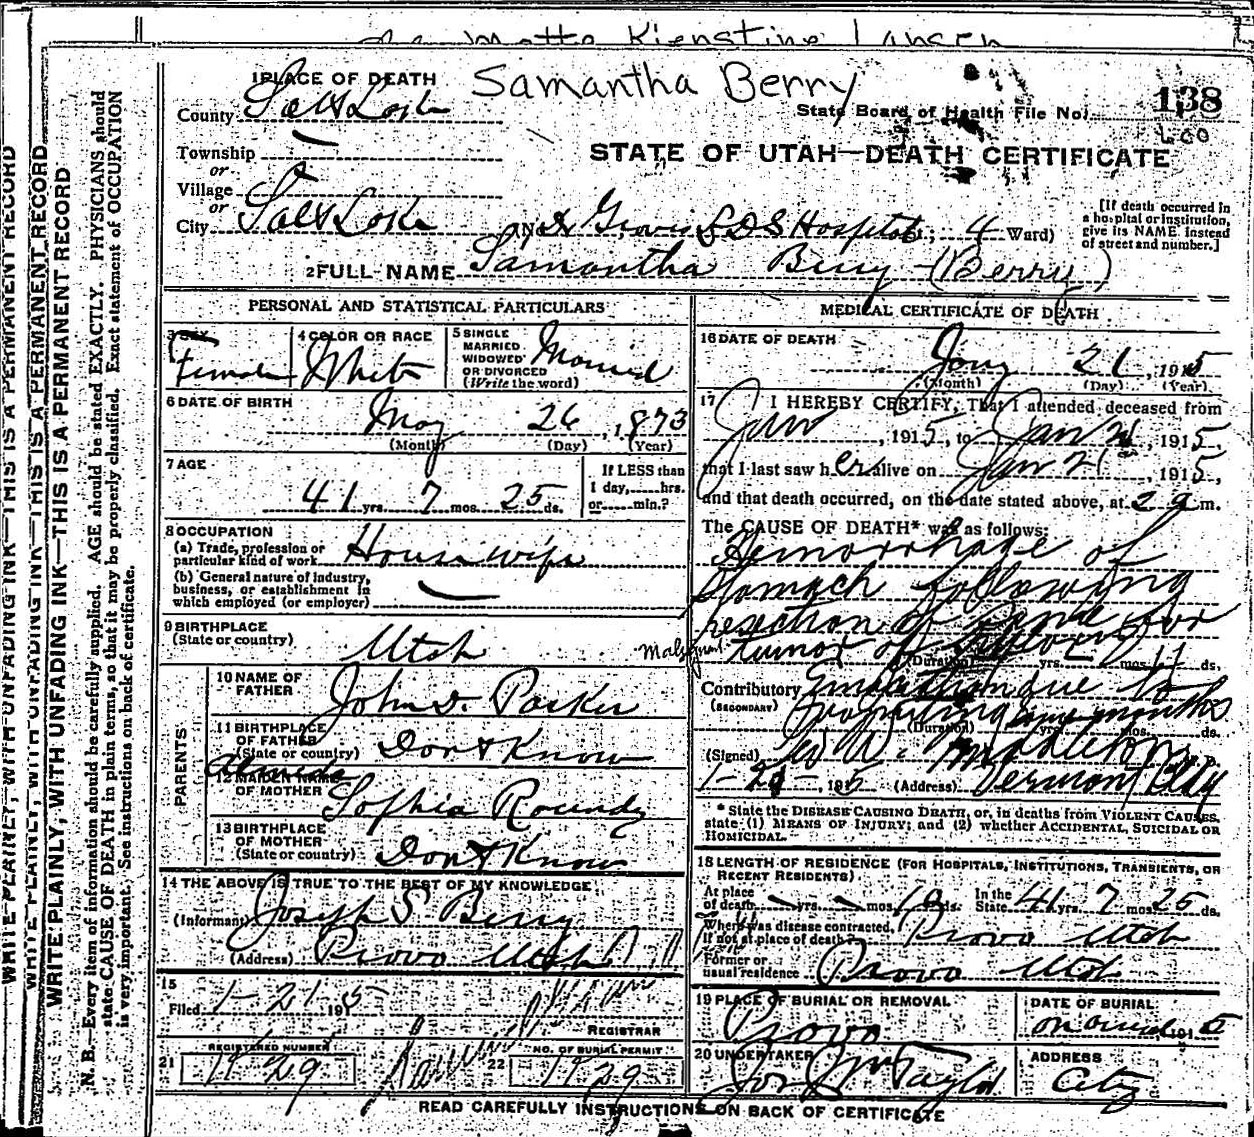 Kienstine Lansen
Samantha Berry
1 PLACE OF DEATH
County Salt Lake
State Board of Health File No. 138
Township
or
Village
or
City Salt Lake
STATE OF UTAH—DEATH CERTIFICATE
L.D.S Hospital St.; 4 Ward)
[If death occurred in
a hospital or institution,
give its NAME instead
of street and number.]
2 FULL NAME Samantha Berry (Berry)
PERSONAL AND STATISTICAL PARTICULARS
3 SEX Female
4 COLOR OR RACE White
5 SINGLE
MARRIED
WIDOWED
OR DIVORCED
(Write the word) Married
6 DATE OF BIRTH
May 26, 1873
(Month) (Day) (Year)
7 AGE
41 yrs. 7 mos. 25 ds.
If LESS than
1 day, hrs.
or min.?
8 OCCUPATION
(a) Trade, profession or
particular kind of work Housewife
(b) General nature of industry,
business, or establishment in
which employed (or employer)
9 BIRTHPLACE
(State or country) Utah
PARENTS
10 NAME OF
FATHER John D. Parker
11 BIRTHPLACE
OF FATHER
(State or country) Don't Know
12 MAIDEN NAME
OF MOTHER Almeda Sophia Roundy
13 BIRTHPLACE
OF MOTHER
(State or country) Don't Know
14 THE ABOVE IS TRUE TO THE BEST OF MY KNOWLEDGE
(Informant) Joseph S Berry
(Address) Provo Utah
15
Filed 1-21 1915
REGISTRAR
21 REGISTERED NUMBER
22 NO. OF BURIAL PERMIT
MEDICAL CERTIFICATE OF DEATH
16 DATE OF DEATH
Jany 21, 1915
(Month) (Day) (Year)
17 I HEREBY CERTIFY, That I attended deceased from
Jan, 1915, to Jan 21, 1915,
that I last saw her alive on Jan 21, 1915,
and that death occurred, on the date stated above, at 2 a m.
The CAUSE OF DEATH* was as follows:
Hemorrhage of
Stomach following
resection of for
Malignant tumor of
(Duration) yrs. mos. 11 ds.
Contributory due to
(SECONDARY) months
(Duration) yrs. mos. ds.
(Signed) Geo W. Middleton
1-21-1915 (Address) Vermont Bldg
* State the DISEASE CAUSING DEATH, or, in deaths from VIOLENT CAUSES,
state (1) MEANS OF INJURY; and (2) whether ACCIDENTAL, SUICIDAL OR
HOMICIDAL.
18 LENGTH OF RESIDENCE (FOR HOSPITALS, INSTITUTIONS, TRANSIENTS, OR
RECENT RESIDENTS).
At place
of death yrs. mos. ds. In the
State 41 yrs. 7 mos. 25 ds.
Where was disease contracted,
If not at place of death? Provo Utah
Former or
usual residence Provo Utah
19 PLACE OF BURIAL OR REMOVAL
Provo
DATE OF BURIAL
on arrival 1915
20 UNDERTAKER
Jos Wm Taylor
ADDRESS
City
READ CAREFULLY INSTRUCTIONS ON BACK OF CERTIFICATE
WRITE PLAINLY, WITH UNFADING INK—THIS IS A PERMANENT RECORD
WRITE PLAINLY, WITH UNFADING INK—THIS IS A PERMANENT RECORD
WRITE PLAINLY, WITH UNFADING INK—THIS IS A PERMANENT RECORD
N. B.—Every item of information should be carefully supplied. AGE should be stated EXACTLY. PHYSICIANS should
state CAUSE OF DEATH in plain terms, so that it may be properly classified. Exact statement of OCCUPATION
is very important. See instructions on back of certificate.